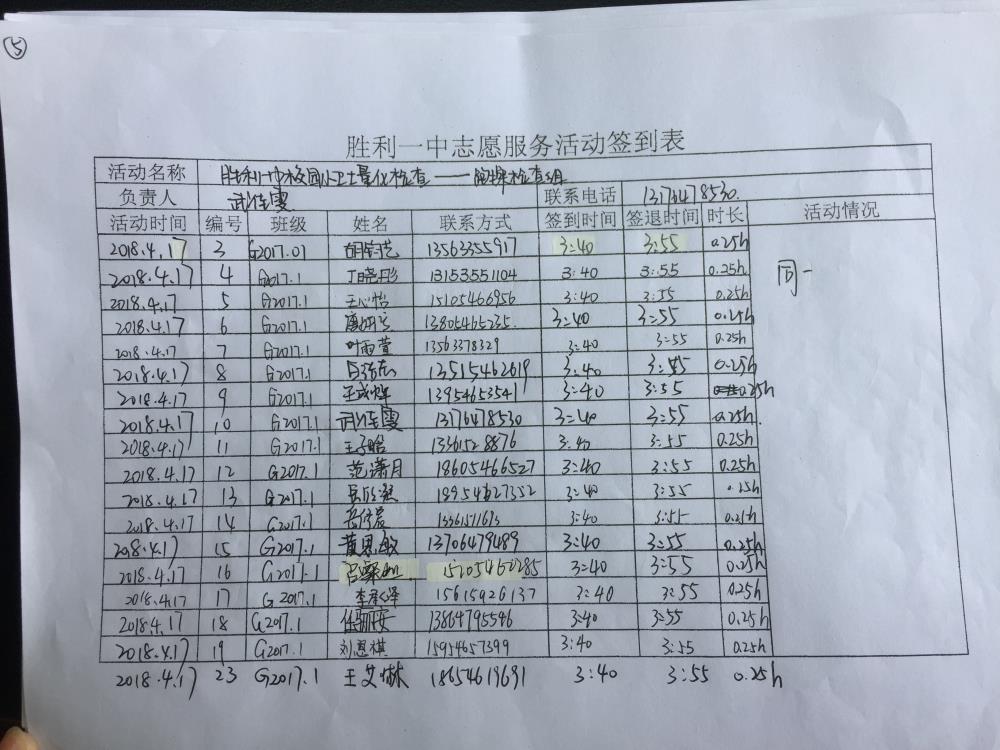 ⑤
胜利一中志愿服务活动签到表
活动名称 胜利一中校园小卫士量化检查——胸牌检查组
负责人 武佳雯 联系电话 13176478530
活动时间 编号 班级 姓名 联系方式 签到时间 签退时间 时长 活动情况
2018.4.17 3 G2017.01 13563355917 3:40 3:55 0.25h
2018.4.17 4 G2017.1 丁晓彤 13153551104 3:40 3:55 0.25h 同一
2018.4.17 5 G2017.1 王心怡 15105466956 3:40 3:55 0.25h
2018.4.17 6 G2017.1 13805465235. 3:40 3:55 0.25h
2018.4.17 7 G2017.1 叶雨萱 13563378329 3:40 3:55 0.25h
2018.4.17 8 G2017.1 13515462619 3:40 3:55 0.25h
2018.4.17 9 G2017.1 王成烨 13954653541 3:40 3:55 0.25h
2018.4.17 10 G2017.1 武佳雯 13176478530 3:40 3:55 0.25h
2018.4.17 11 G2017.1 王子晗 13361528876 3:40 3:55 0.25h
2018.4.17 12 G2017.1 范潇月 18605466527 3:40 3:55 0.25h
2018.4.17 13 G2017.1 18954627352 3:40 3:55 0.25h
2018.4.17 14 G2017.1 3:40 3:55 0.25h
2018.4.17 15 G2017.1 黄思敏 13706479489 3:40 3:55 0.25h
2018.4.17 16 G2017.1 15205460285 3:40 3:55 0.25h
2018.4.17 17 G2017.1 李承泽 15615926137 3:40 3:55 0.25h
2018.4.17 18 G2017.1 任丽安 13864795546 3:40 3:55 0.25h
2018.4.17 19 G2017.1 刘恩祺 15954657399 3:40 3:55 0.25h
2018.4.17 23 G2017.1 王艾琳 18654619691 3:40 3:55 0.25h